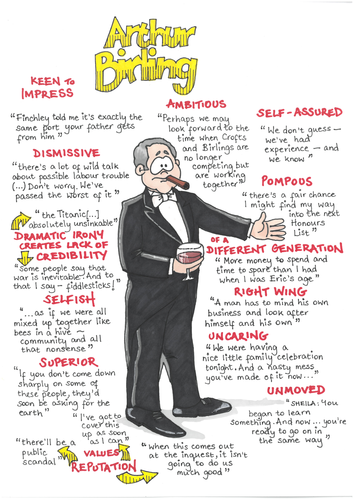 Arthur
Birling
KEEN TO
IMPRESS
"Finchley told me it's exactly the
same port your father gets
from him"
AMBITIOUS
"Perhaps we may
look forward to the
time when Crofts
and Birlings are
no longer
competing but
are working
together"
SELF-ASSURED
"We don't guess –
we've had
experience – and
we know"
DISMISSIVE
"there's a lot of wild talk
about possible labour trouble
(...) Don't worry. We've
passed the worst of it"
POMPOUS
"there's a fair chance
I might find my way
into the next
Honours
List"
"the Titanic[...]
absolutely unsinkable"
DRAMATIC IRONY
CREATES LACK OF
CREDIBILITY
"Some people say that
war is inevitable. And to
that I say – fiddlesticks!"
OF A
DIFFERENT GENERATION
"More money to spend and
time to spare than I had
when I was Eric's age"
SELFISH
"...as if we were all
mixed up together like
bees in a hive –
community and all
that nonsense"
RIGHT WING
"A man has to mind his own
business and look after
himself and his own"
UNCARING
"We were having a
nice little family celebration
tonight. And a nasty mess
you've made of it now..."
SUPERIOR
"If you don't come down
sharply on some of
these people, they'd
soon be asking for the
earth"
UNMOVED
"SHEILA: You
began to learn
something. And now ... you're
ready to go on in
the same way"
"I've got to
cover this
up as soon
as I can"
"there'll be a
public
scandal"
VALUES
REPUTATION
"When this comes out
at the inquest, it isn't
going to do us
much good"